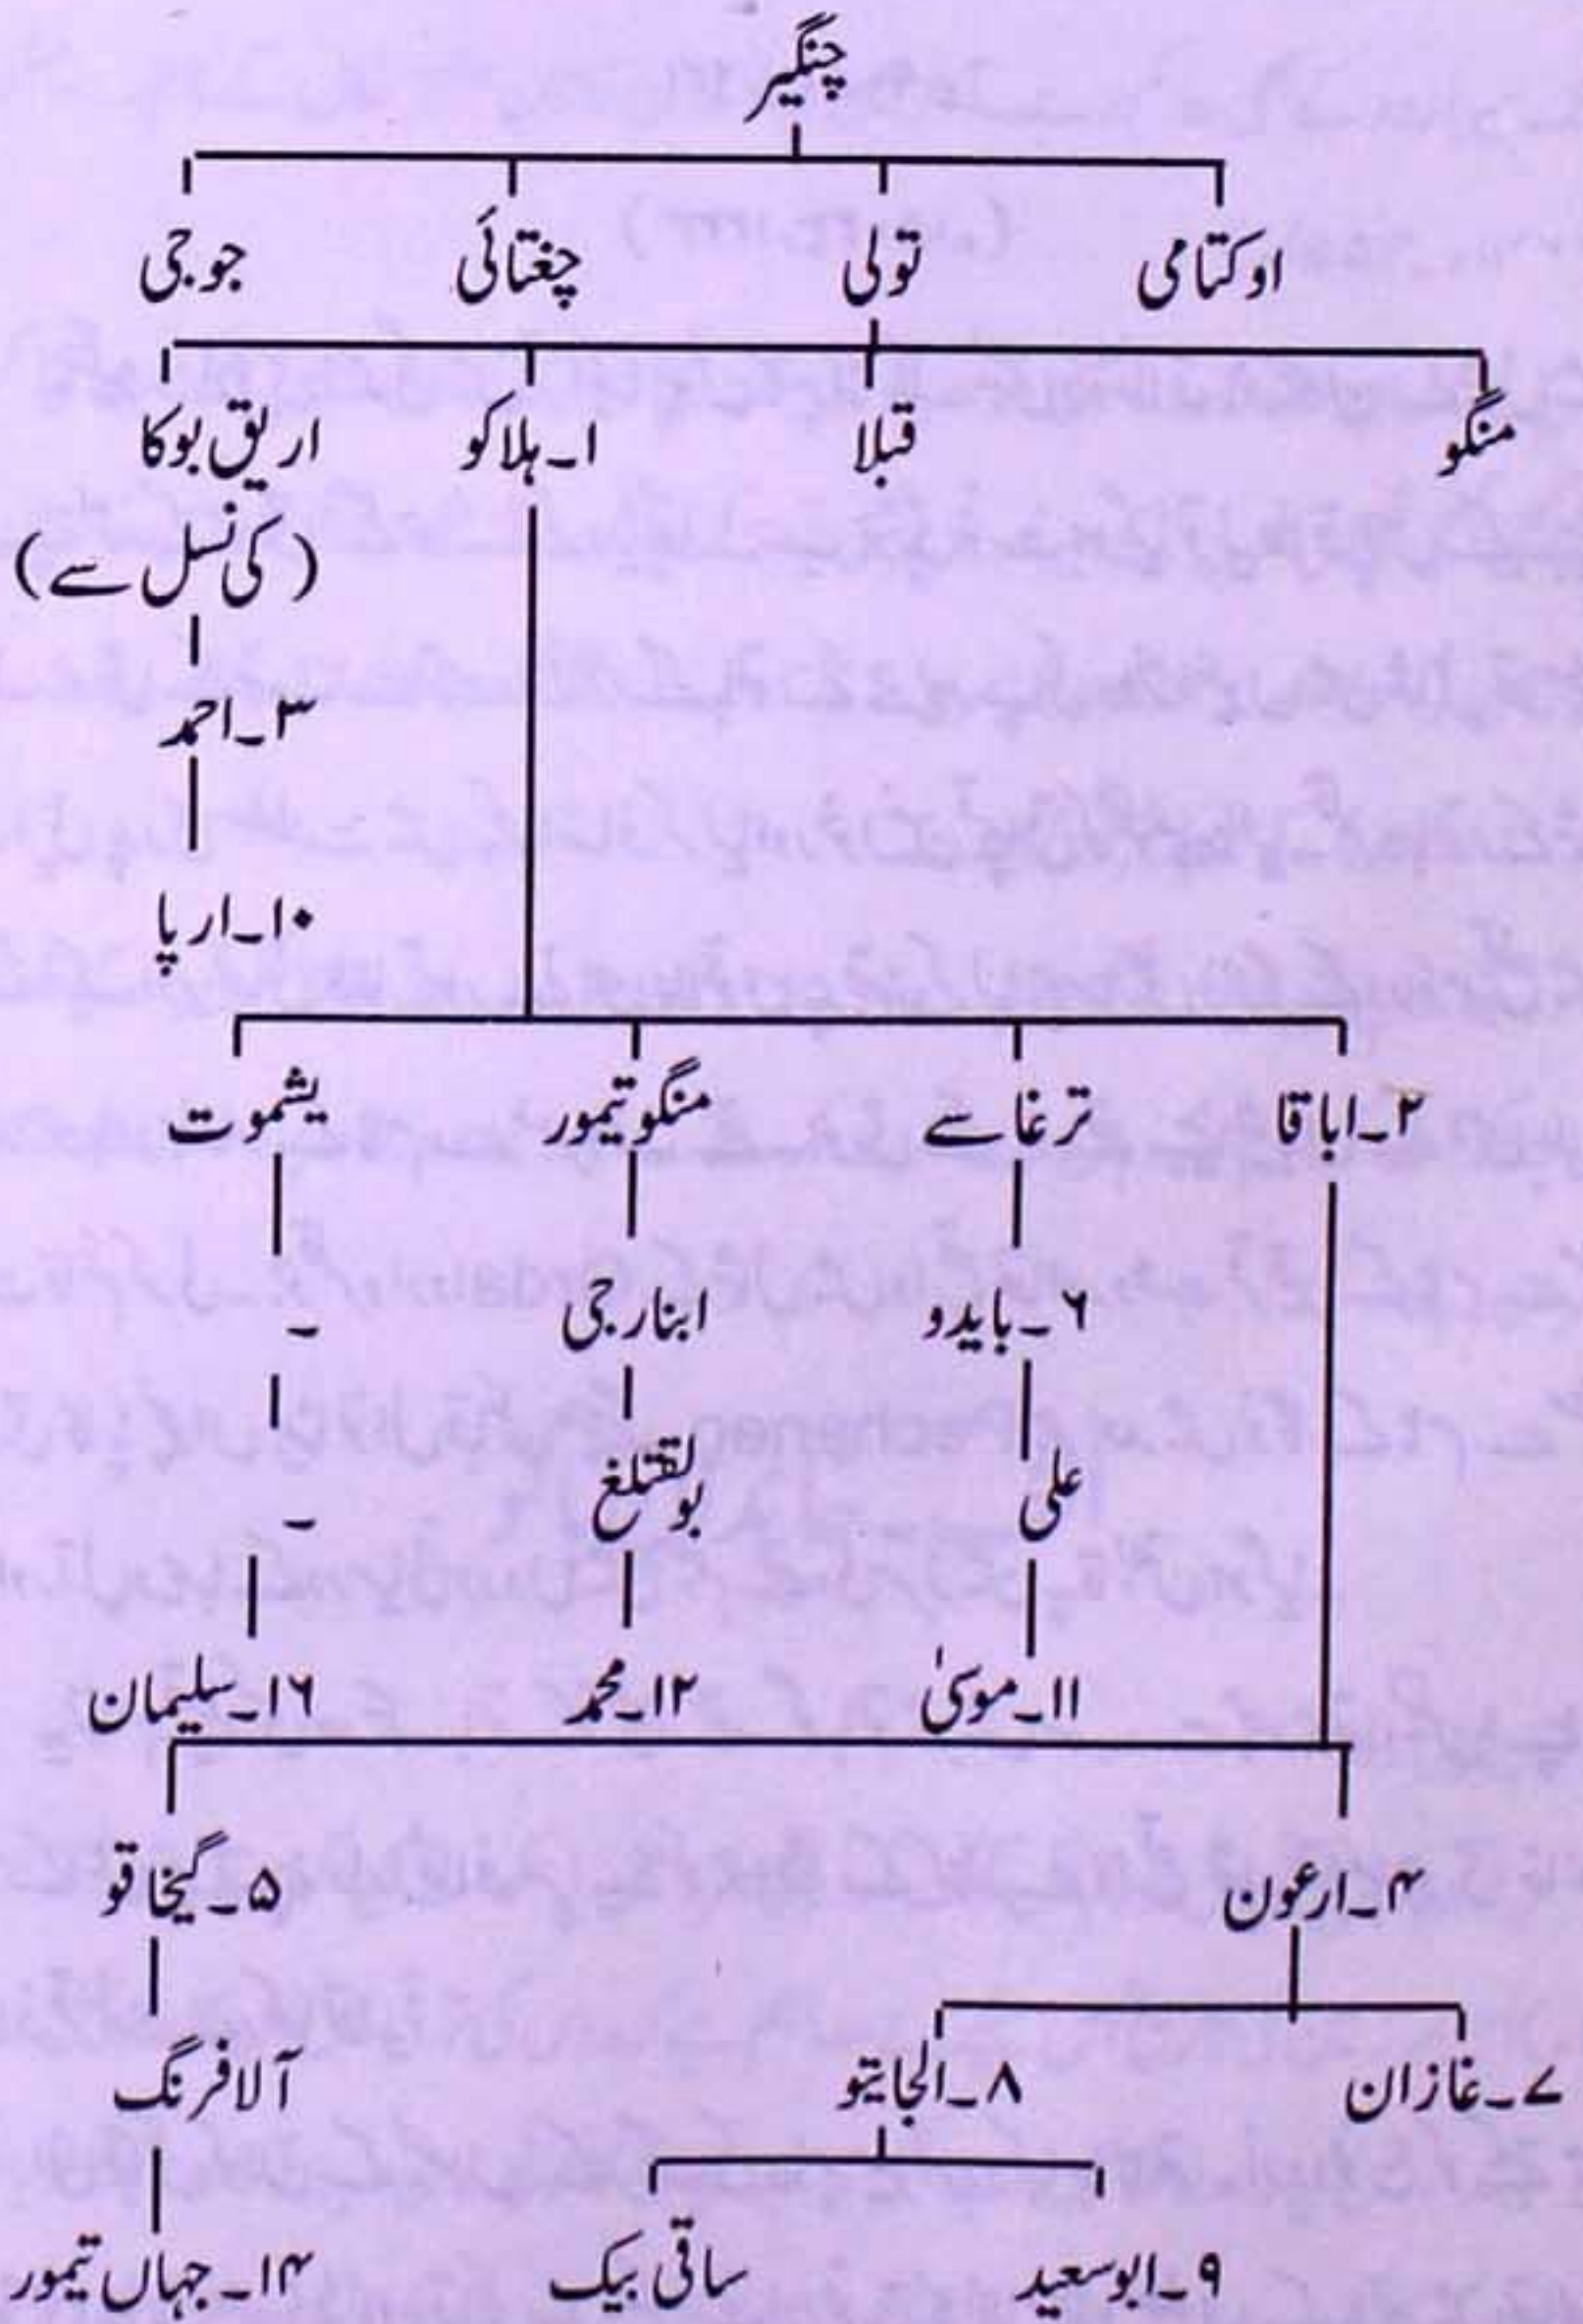 چنگیر
اوکتامی تولی چغتائی جوجی
منگو قبلا ۱۔ہلاکو اریق بوکا
(کی نسل سے)
۳۔احمد
۱۰۔ارپا
۲۔اباقا ترغاسے منگوتیمور یشموت
۶۔بایدو ابنارجی ۔
علی بولقتلغ ۔
۱۱۔موسیٰ ۱۲۔محمد ۱۶۔سلیمان
۴۔ارعون ۵۔گیخاقو
۷۔غازان ۸۔الجایتو آلافرنگ
۹۔ابوسعید ساقی بیک ۱۴۔جہاں تیمور